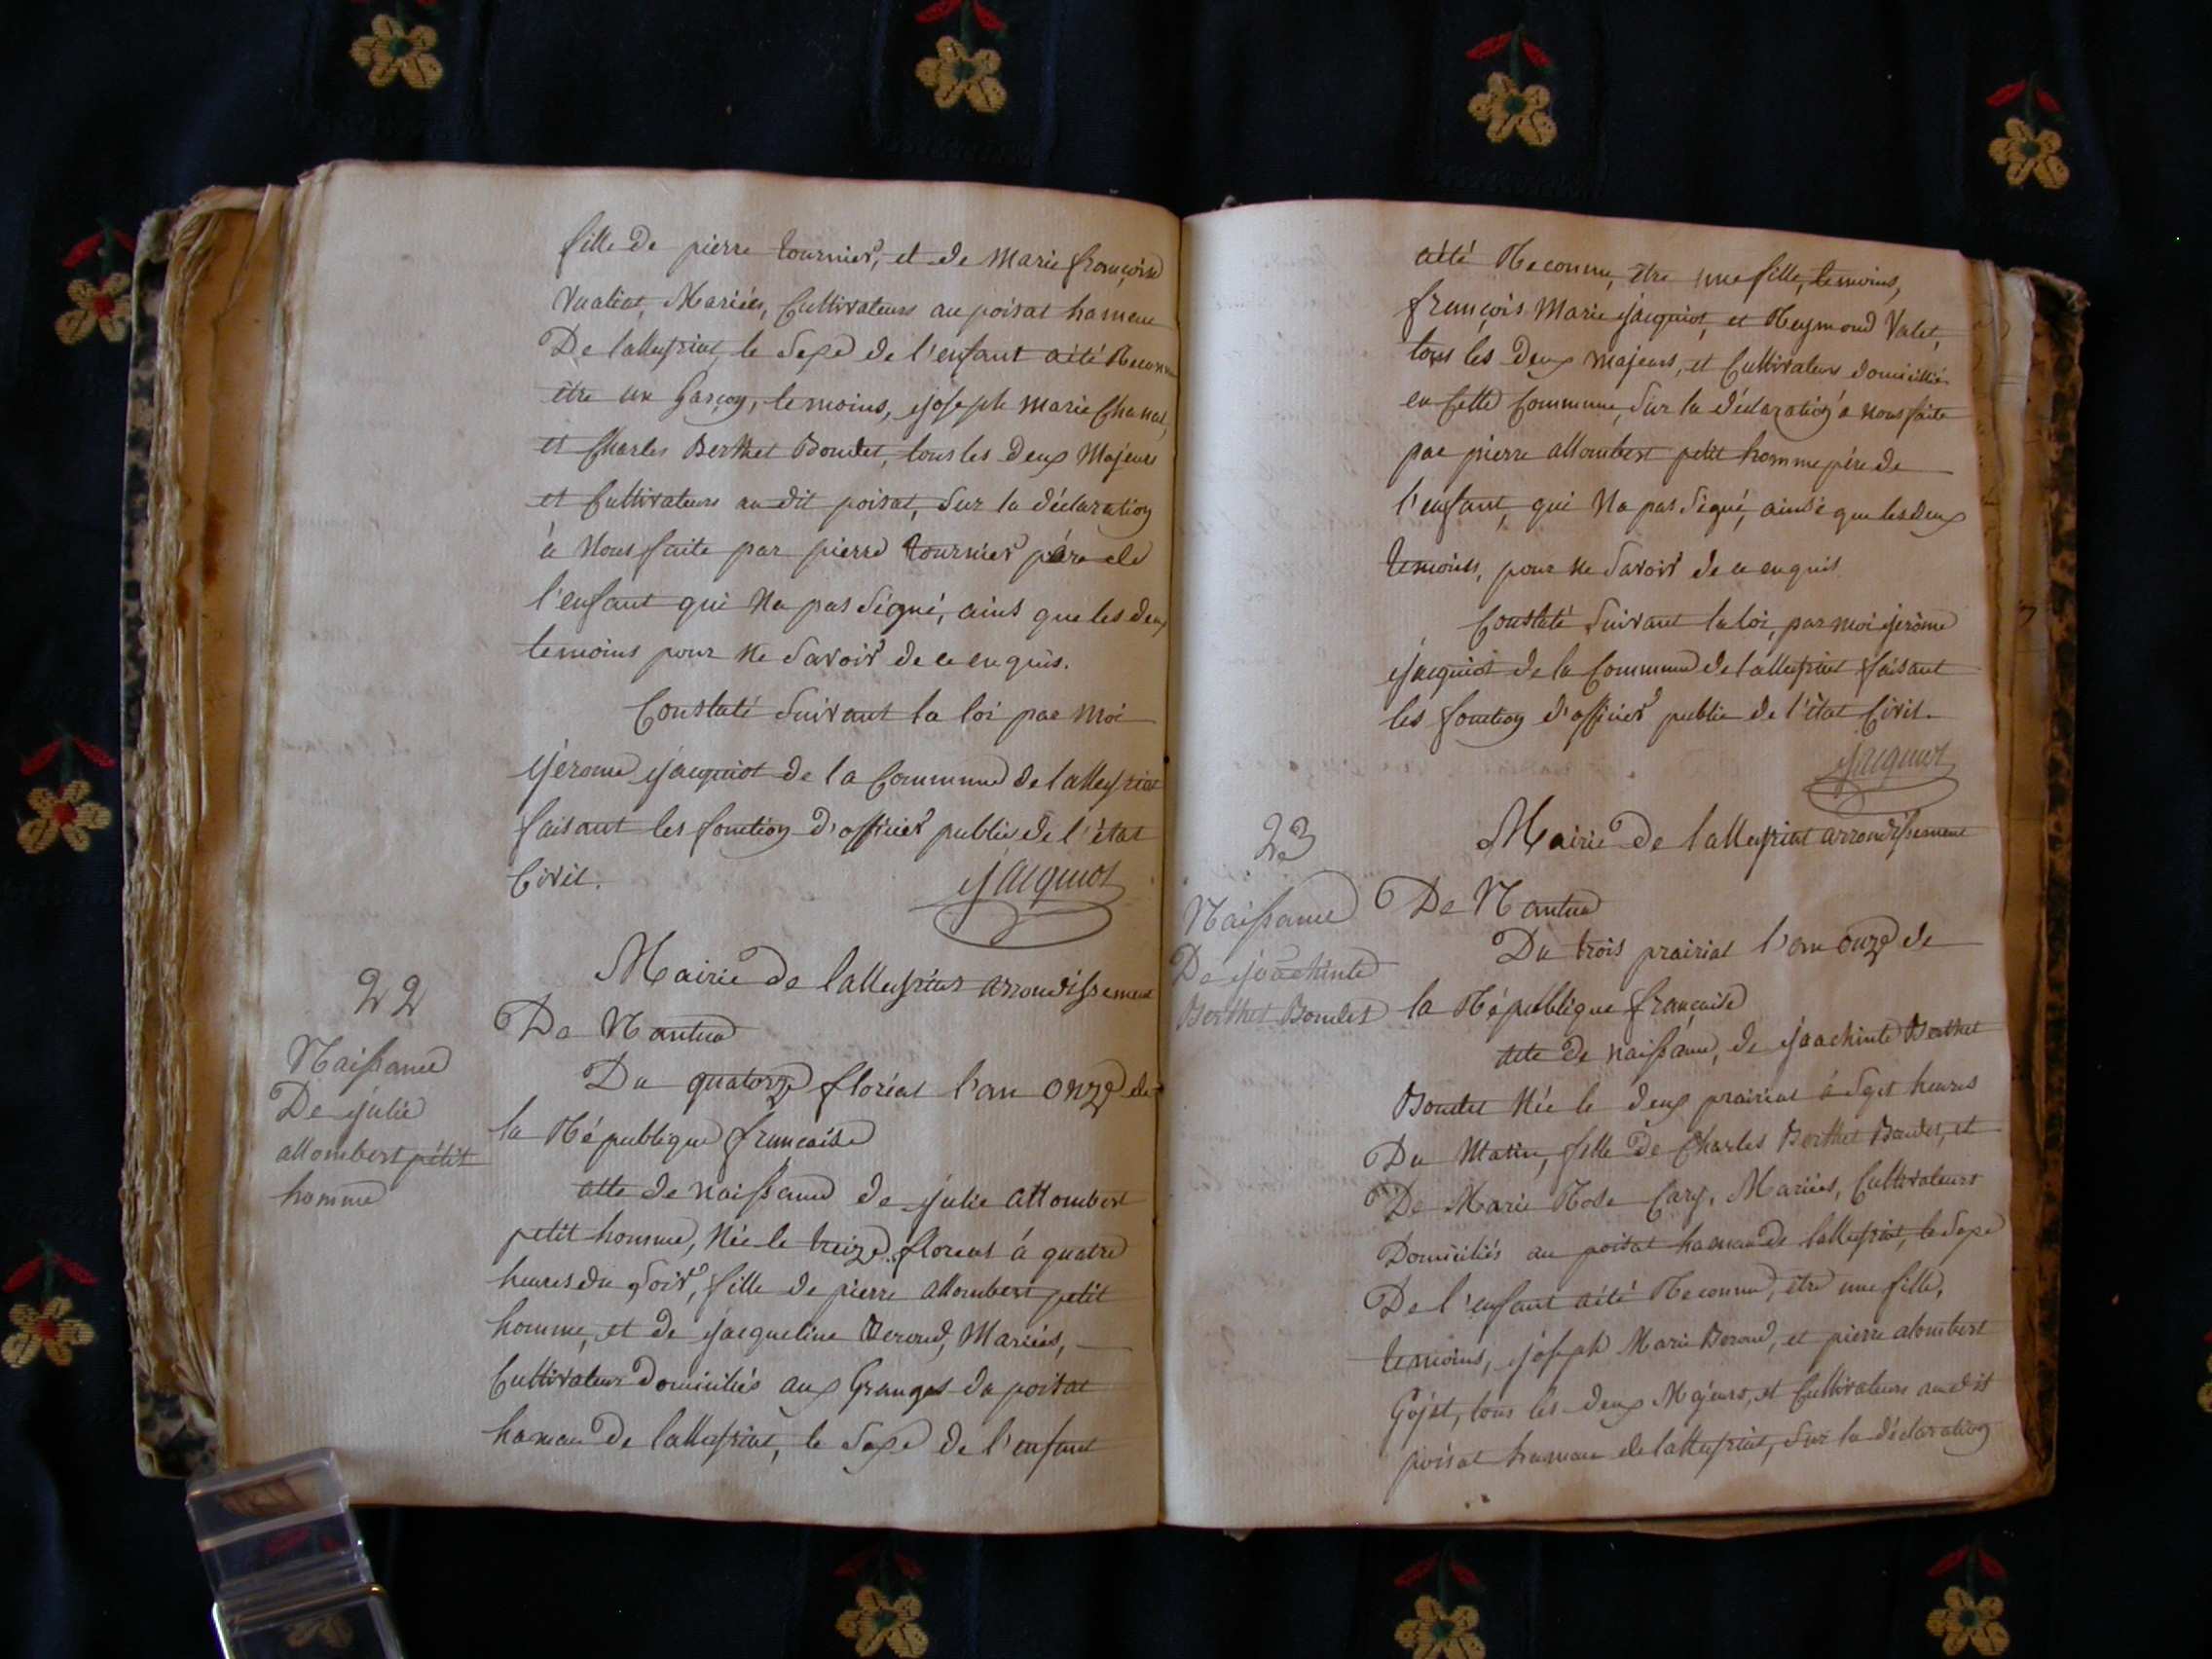 fille de pierre tournier, et de Marie françoise
Vualiat, Mariés, Cultivateurs au poisat hameau
De lalleyriat, le Sexe de l'enfant aété Reconnu
être un Garçon, temoins, joseph marie Chanal,
et Charles Berthet Bondet, tous les deux Majeurs
et Cultivateurs au dit poisat, Sur la déclaration
à Nous faite par pierre tournier père de
l'enfant qui Na pas Signé, ains que les deux
temoins pour Ne Savoir de ce enquis.
Constaté Suivant la loi par Moi
jerome jacquiot de la Commune de lalleyriat
faisant les fonction d'officier public de l'état
Civil.
jacquiot
22
Naissance
De julie
allombert pétit
homme
Mairie de lalleyriat arrondissement
De Nantua
Du quatorze floréal l'an onze de
la République française
acte de naissance de julie allombert
petit homme, Née le treize floreal à quatre
heures du Soir, fille de pierre allombert petit
homme, et de jacqueline Beroud, Mariés,
Cultivateurs Domiciliés aux Granges du poisat
hameau De lalleyriat, le Sexe De l'enfant
aété Reconnu, être une fille, temoins,
françois Marie jacquiot, et Reymond Valet,
tous les Deux majeurs, et Cultivateurs domiciliés
en Cette Commune, Sur la déclaration à nous faite
par pierre allombert petit homme père de
l'enfant, qui Na pas Signé, ainsi que les deux
temoins, pour ne Savoir de ce enquis
Constaté Suivant la loi, par moi jerôme
jacquiot de la Commune de lalleyriat faisant
les fonction d'officier public de l'état Civil.
jacquiot
23
Naissance
De joachinte
Berthet Bondet
Mairie De lalleyriat arrondissement
De Nantua
Du trois prairial l'an onze de
la République française
acte De naissance, de joachinte Berthet
Bondet Née le deux prairial à Sept heures
Du Matin, fille De Charles Berthet Bondet, et
De Marie Rose Cary, Mariés, Cultivateurs
Domiciliés au poisat hameau de lalleyriat, le Sexe
De l'enfant aété Reconnu, être une fille,
temoins, joseph Marie Beroud, et pierre alombert
Gojet, tous les deux Majeurs, et Cultivateurs audit
poisat hameau de lalleyriat, Sur la déclaration